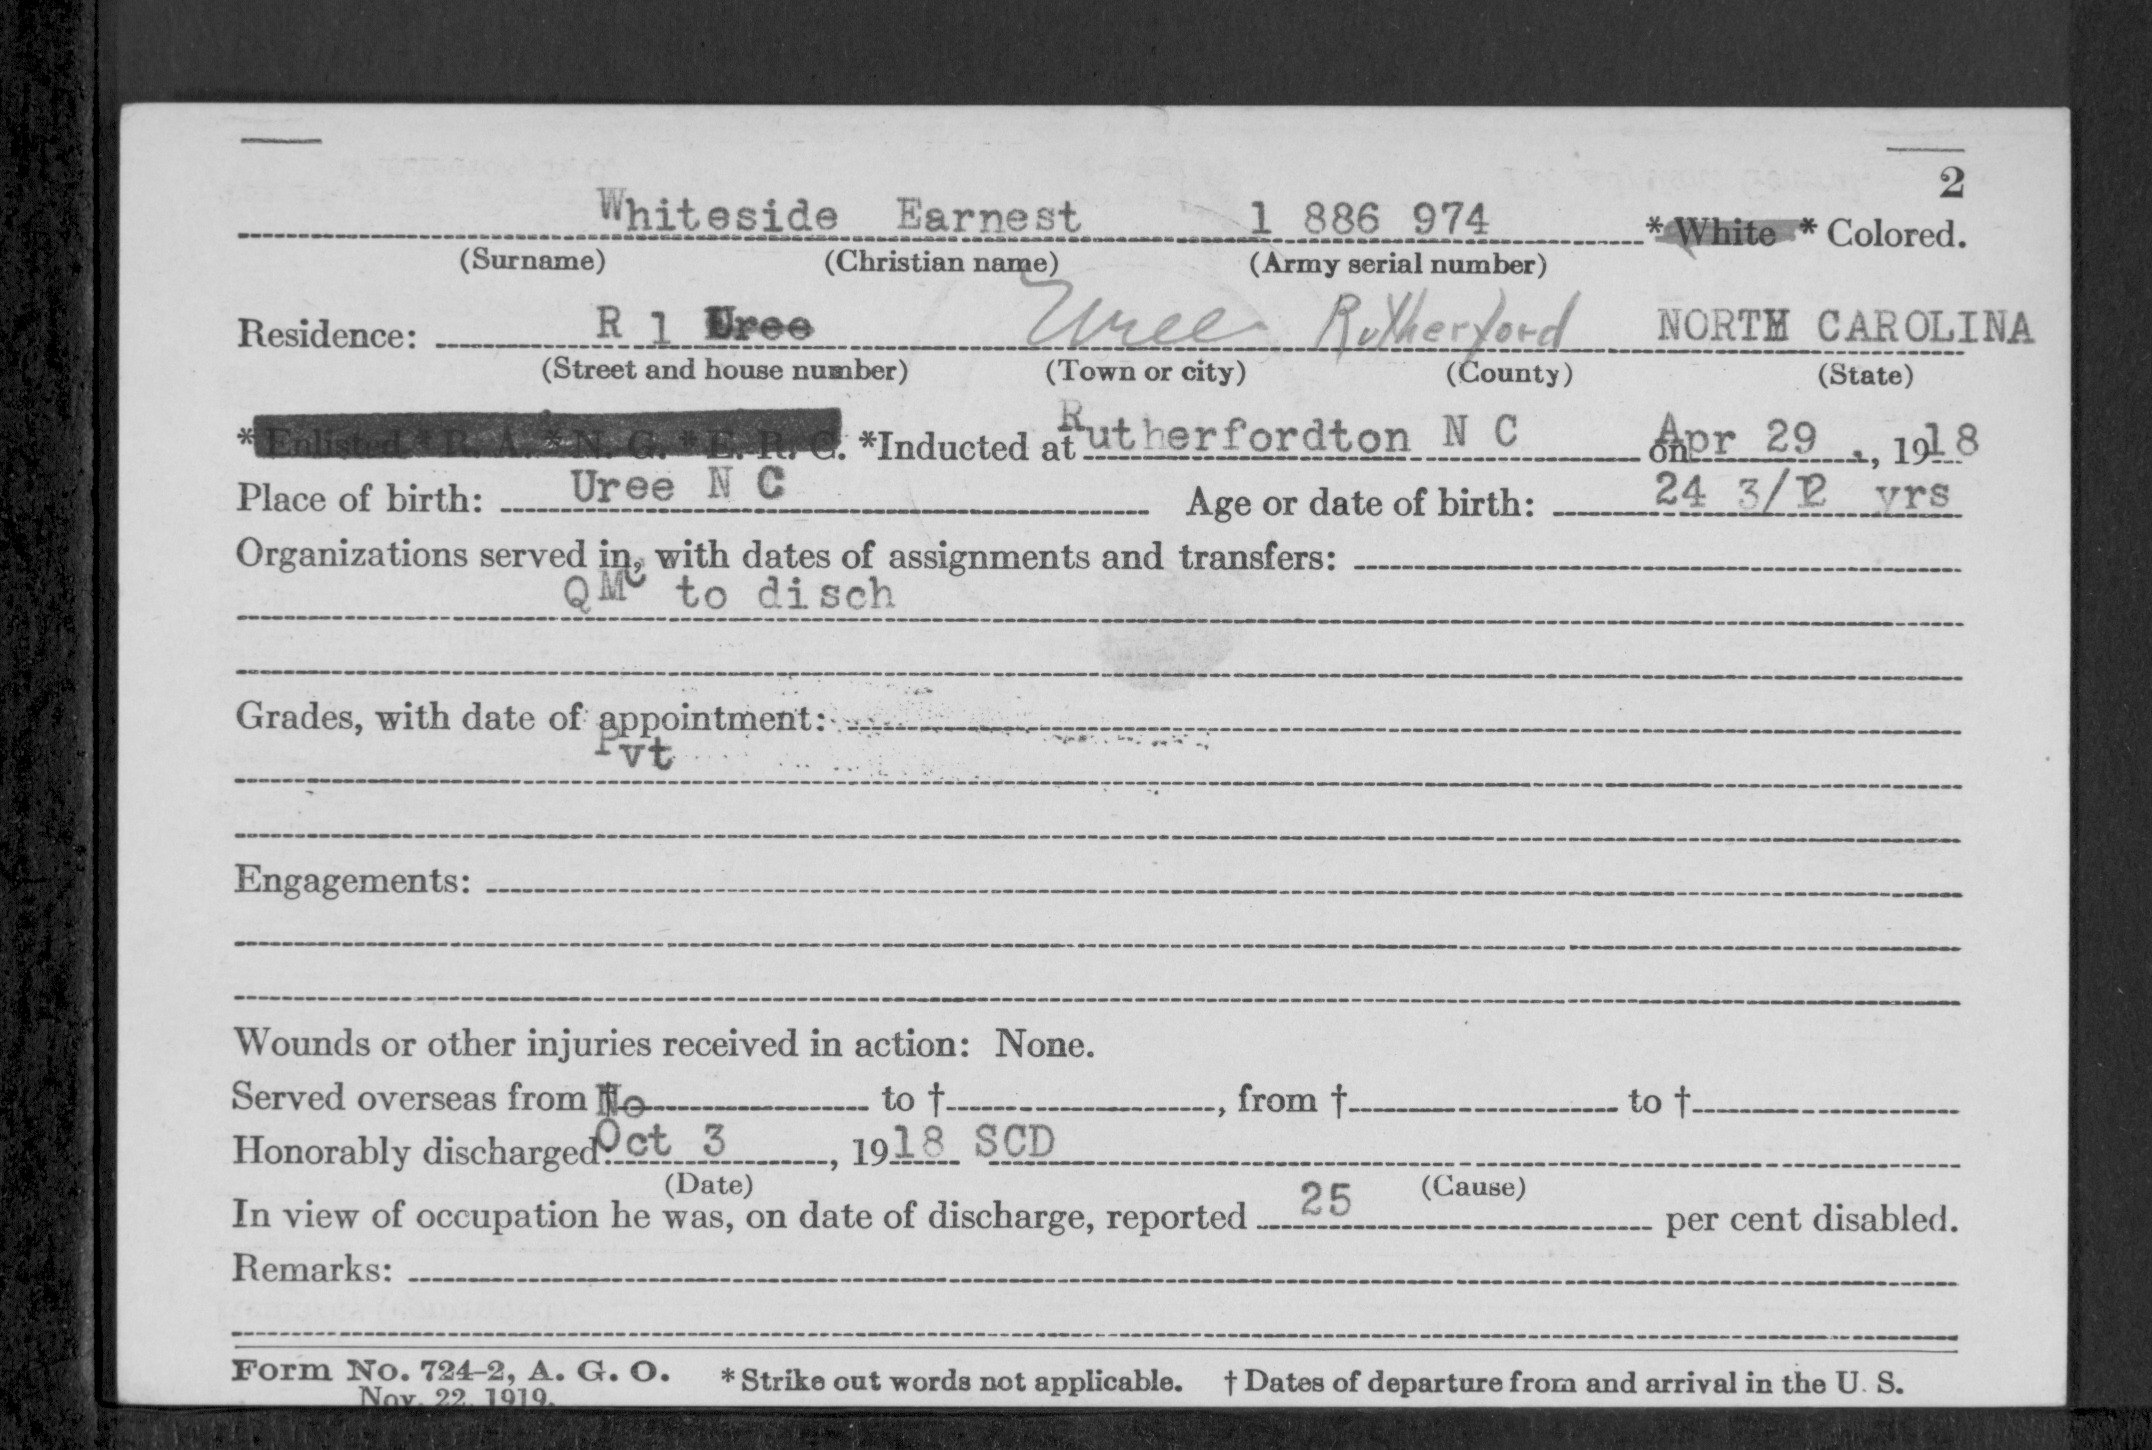 2
Whiteside Earnest 1 886 974 * White * Colored.
(Surname) (Christian name) (Army serial number)
Residence: R 1 Uree Uree Rutherford NORTH CAROLINA
(Street and house number) (Town or city) (County) (State)
* Enlisted * R. A. * N. G. * E. R. C. *Inducted at Rutherfordton N C on Apr 29 , 1918
Place of birth: Uree N C Age or date of birth: 24 3/12 yrs
Organizations served in, with dates of assignments and transfers:
QMC to disch
Grades, with date of appointment:
Pvt
Engagements:
Wounds or other injuries received in action: None.
Served overseas from † No to †, from † to †
Honorably discharged: Oct 3, 1918 SCD
(Date) (Cause)
In view of occupation he was, on date of discharge, reported 25 per cent disabled.
Remarks:
Form No. 724-2, A. G. O. * Strike out words not applicable. † Dates of departure from and arrival in the U. S.
Nov. 22, 1919.